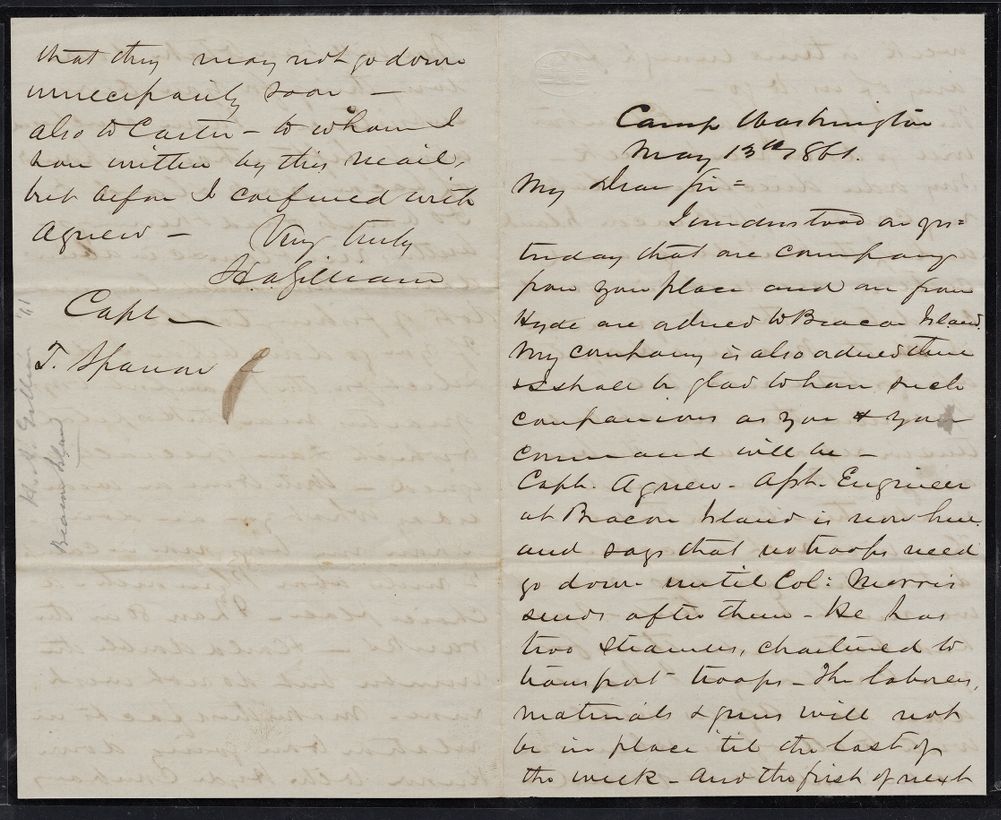 Camp Washington
May 13th 1861.
My Dear Sir =
I understood on yes=
terday that one company
from your place and one from
Hyde are ordered to Beacon Island.
My company is also ordered there
& I shall be glad to have such
companions as you & your
command will be –
Capt. Agnew – Asst. Engineer
at Beacon Island is now here.
and says that no troops need
go down until Col: Morris
sends after them – He has
two steamers, chartered to
transport troops – The laborers,
materials & guns will not
be in place 'til the last of
the week – and the first of next
that they may not go down
unnecessarily soon –
also to Carter – to whom I
have written by this mail,
but before I confered with
Agnew – Very truly
H A Gilliam
Capt –
T. Sparrow
H. A. Gilliam '61
Beacon Island